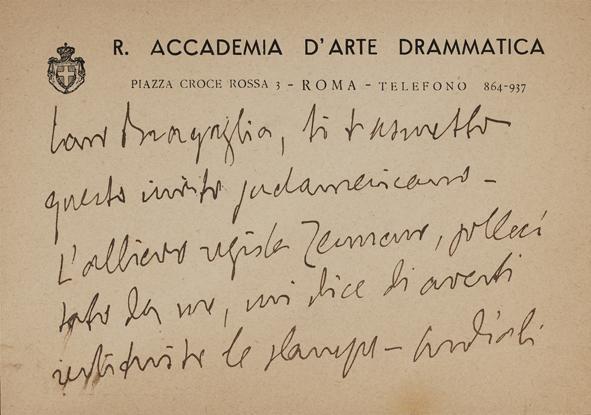 R. ACCADEMIA D'ARTE DRAMMATICA
PIAZZA CROCE ROSSA 3 - ROMA - TELEFONO 864-937
Caro Bragaglia, ti trasmetto
questo invito sudamericano -
L'allievo regista, solleci
tato da me, mi dice di averti
restituito le stampe - Cordiali